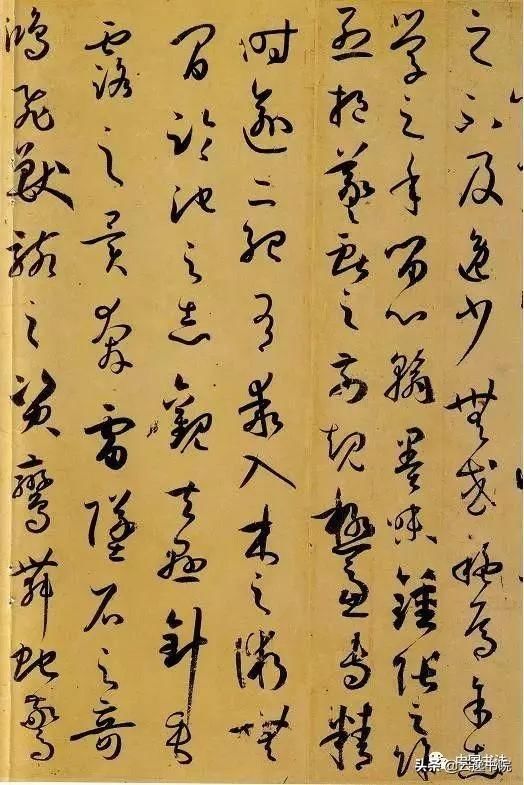 之不及逸少無或疑焉余志
學之年留心翰墨味鍾張之餘
烈挹羲獻之前規極慮專精
時逾二紀有乖入木之術無
間臨池之志觀夫懸針垂
露之異奔雷墜石之奇
鴻飛獸駭之資鸞舞蛇驚
中国书法
头条 @书院